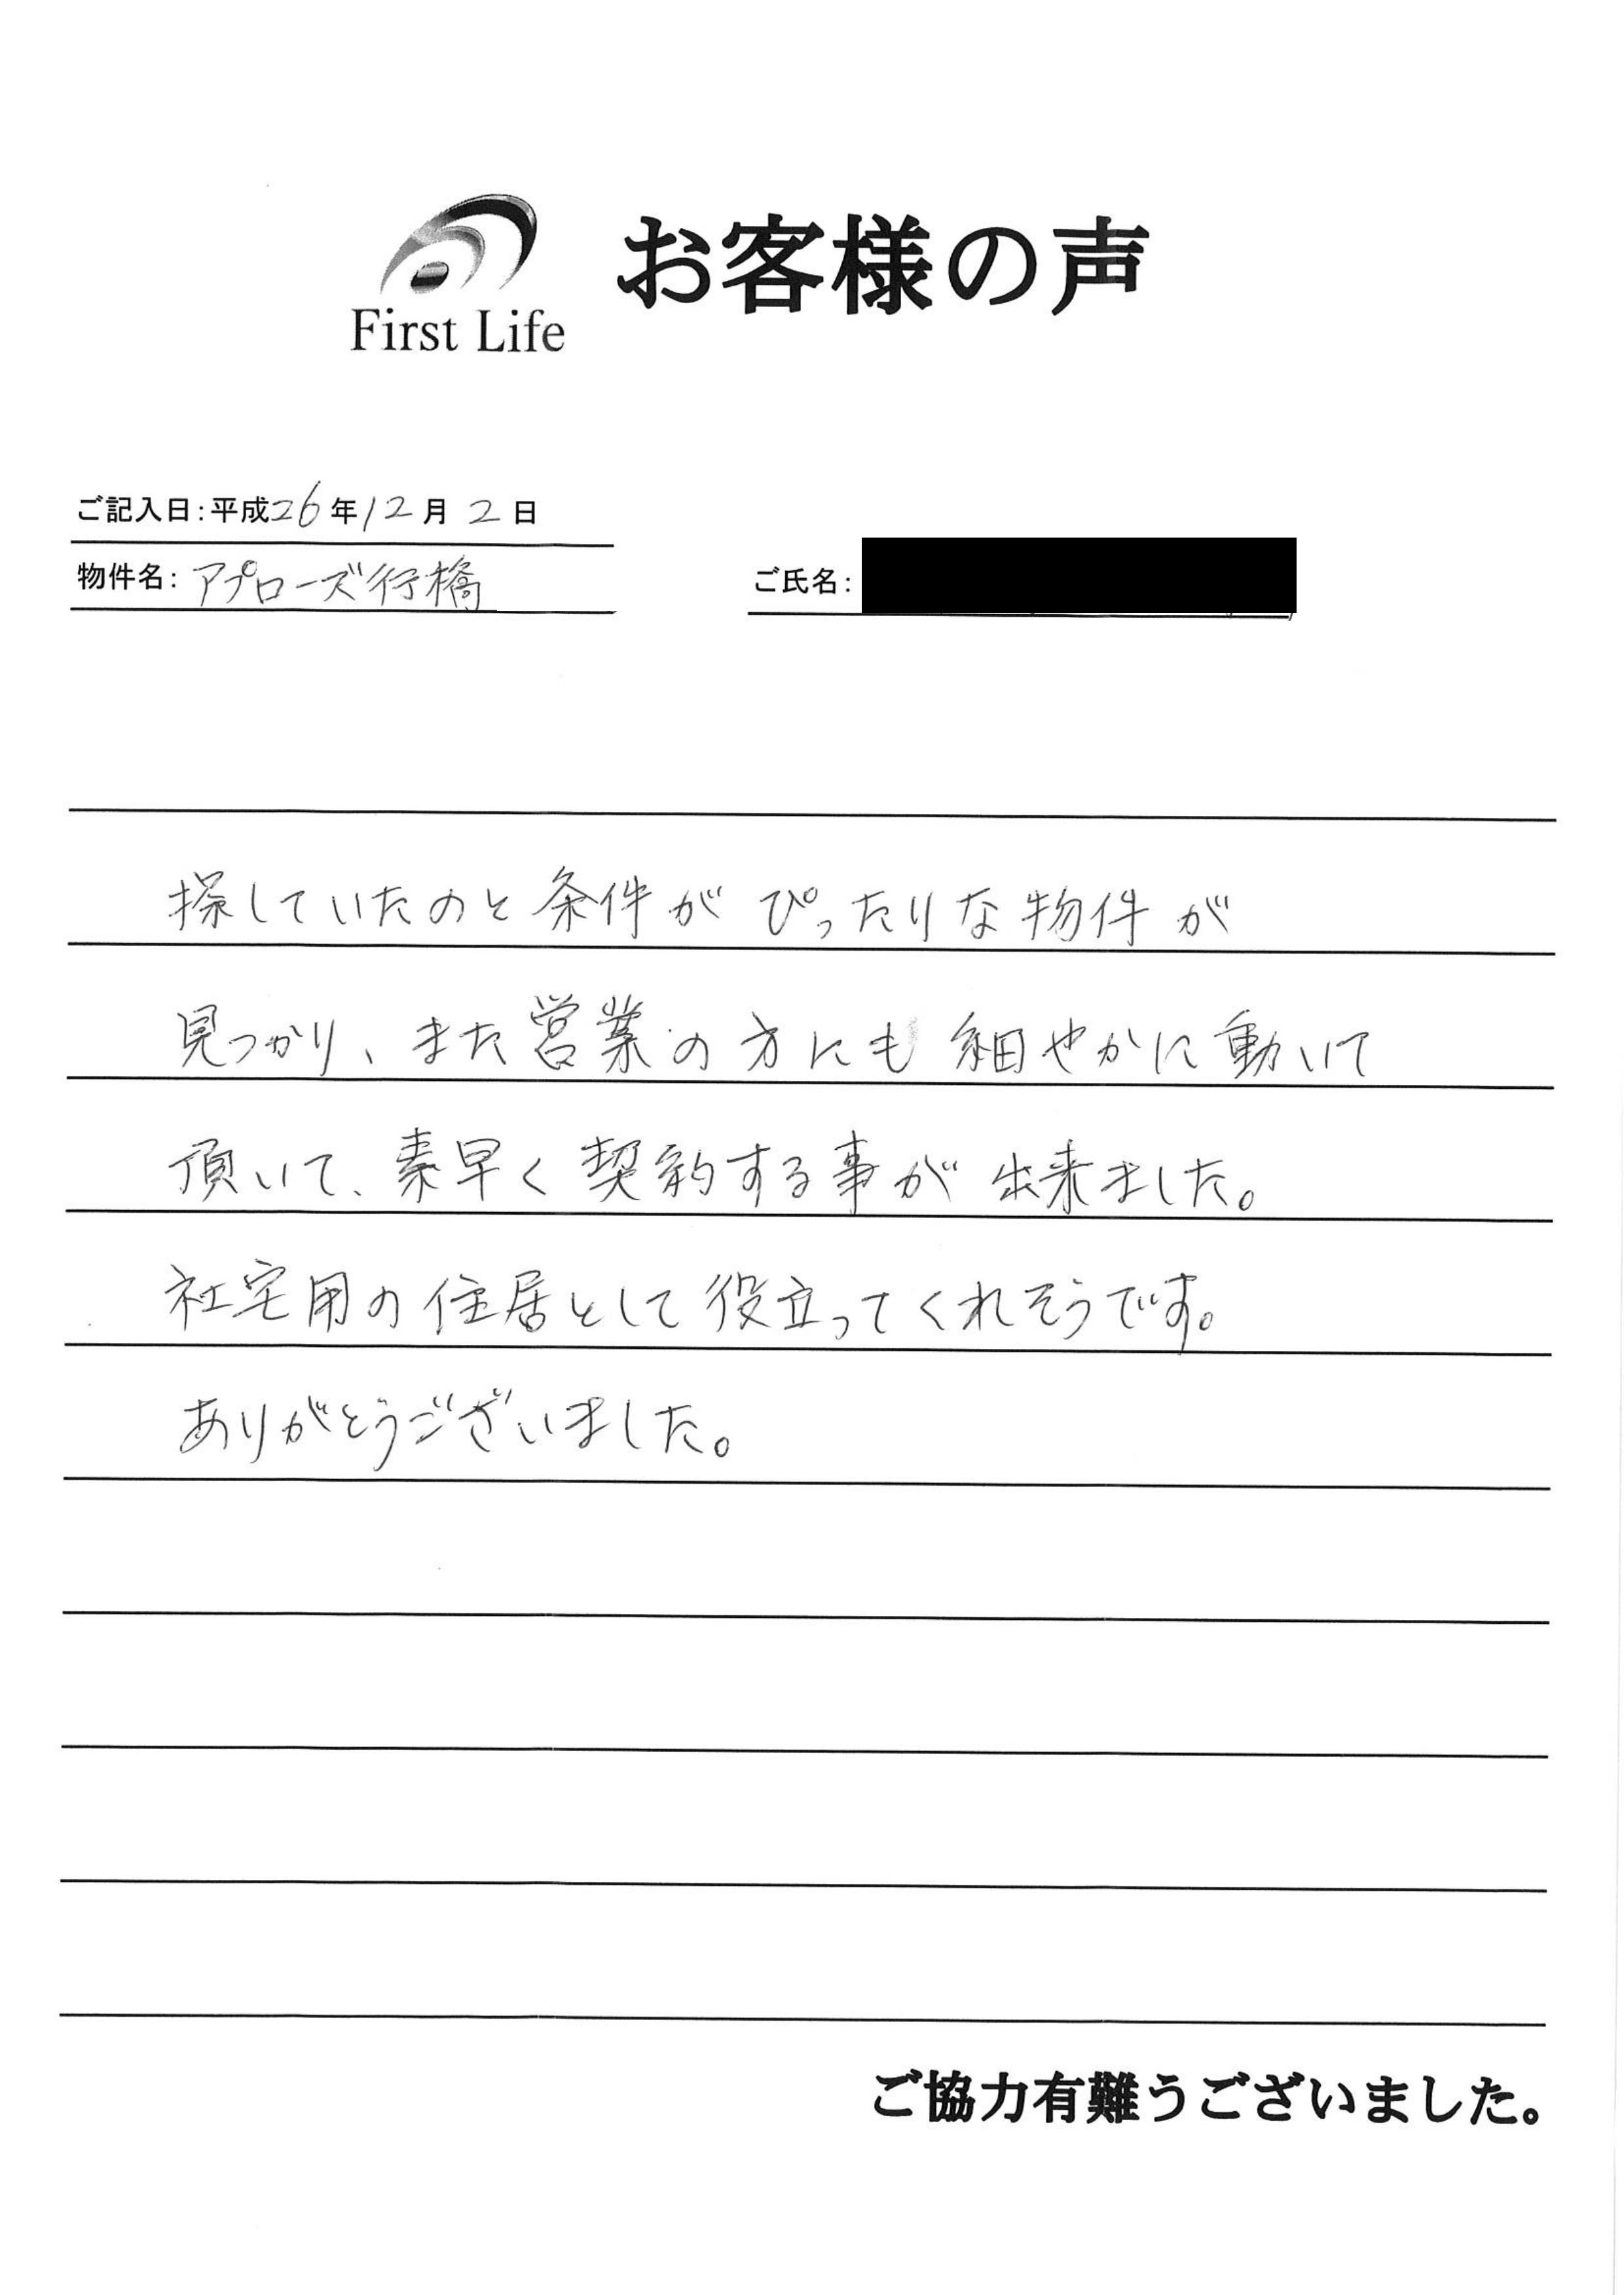 お客様の声
First Life
ご記入日:平成26年12月2日
物件名:アプローズ行橋
ご氏名:
探していたのと条件がぴったりな物件が
見つかり、また営業の方にも細やかに動いて
頂いて、素早く契約する事が出来ました。
社宅用の住居として役立ってくれそうです。
ありがとうございました。
ご協力有難うございました。